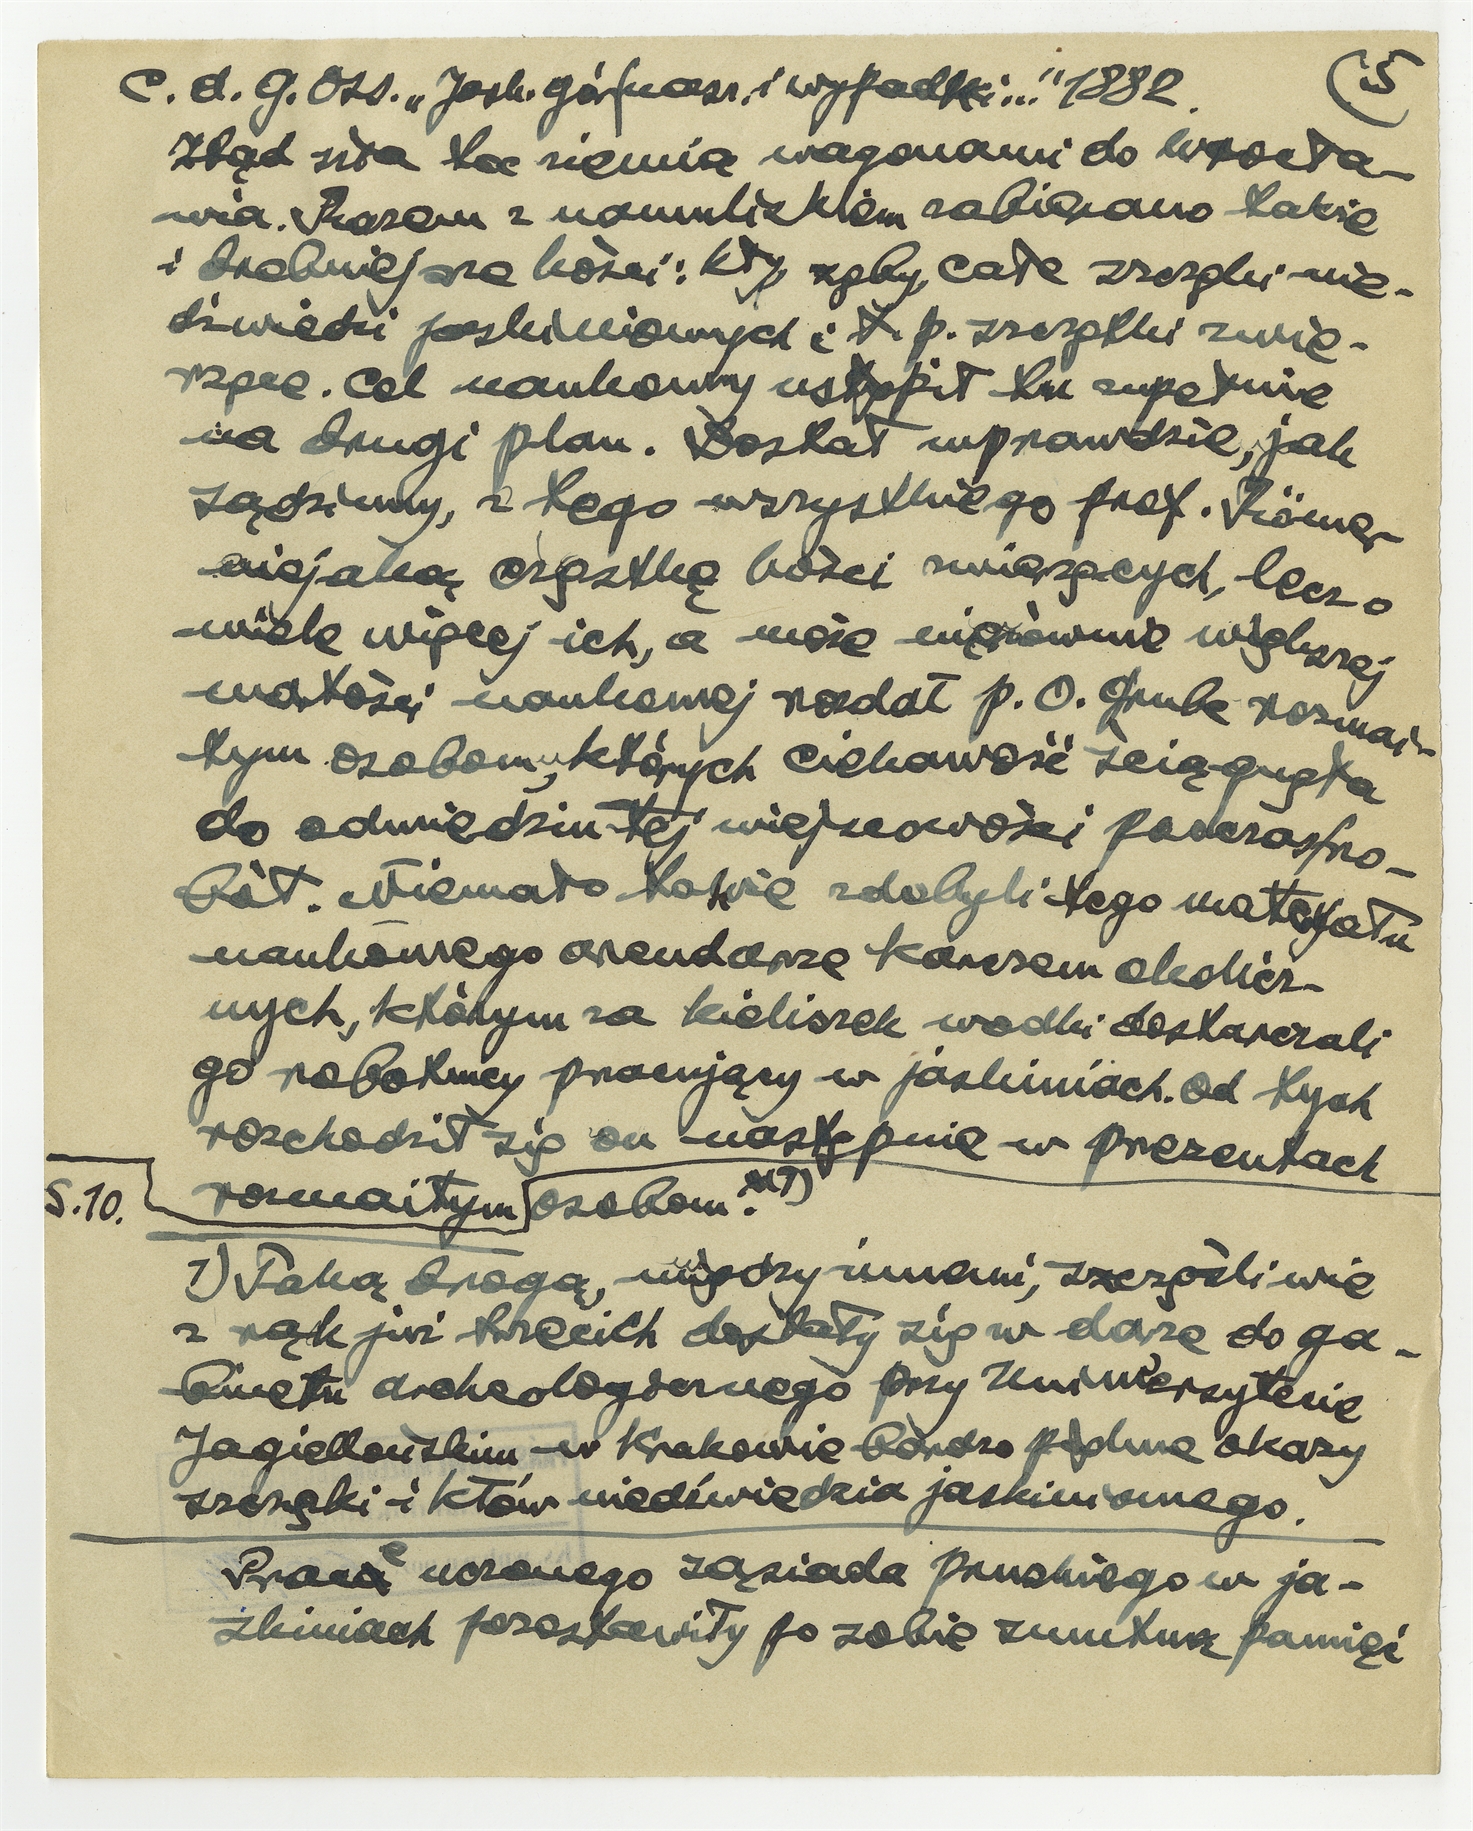 C. d. G. Oss. „Jask. gór. nasz. i wypadki..." 1882. 5
Ztąd szła ta ziemia wagonami do Wrocła-
wia. Razem z namuliskiem zabierano także
i drobniejsze kości: kły, zęby, całe szczęki nie-
dźwiedzi jaskiniowych i t. p. szczątki zwie-
rzęce. Cel naukowy ustąpił tu zupełnie
na drugi plan. Dostał wprawdzie, jak
sądzimy, z tego wszystkiego prof. Römer
niejaką cząstkę kości zwierzęcych, lecz o
wiele więcej ich, a może nierównie większej
wartości naukowej rozdał p. O. Grube rozmai-
tym osobom, których ciekawość ściągnęła
do odwiedzin tej miejscowości podczas ro-
bót. Niemało także zdobyli tego materyału
naukowego arendarze karczem okolicz-
nych, którym za kieliszek wódki dostarczali
go robotnicy pracujący w jaskiniach. Od tych
rozchodził się on następnie w prezentach
S.10. rozmaitym osobom. 1)
1) Taką drogą, między innemi, szczęśliwie
z rąk już trzecich dostały się w darze do ga-
binetu archeologicznego przy Uniwersytecie
Jagiellońskim w Krakowie bardzo piękne okazy
szczęki i kłów niedźwiedzia jaskiniowego.
Prace uczonego sąsiada pruskiego w ja-
skiniach pozostawiły po sobie smutną pamięć